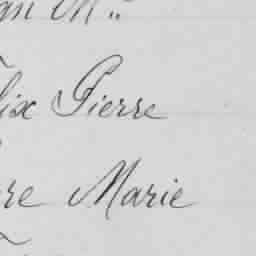 an M..
lix Pierre
re Marie